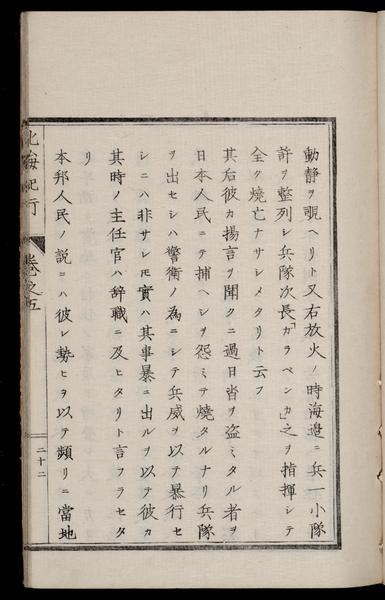 動静ヲ覗ヘリト又右放火ノ時海邉ニ兵一小隊
許ヲ整列シ兵隊次長「ガラペンカ」之ヲ指揮シテ
全ク焼亡ナサシメタリト云フ
其后彼カ揚言ヲ聞クニ過日沓ヲ盗ミタル者ヲ
日本人民ニテ捕ヘシヲ怨ミテ焼タルナリ兵隊
ヲ出セシハ警衛ノ為ニシテ兵威ヲ以テ暴行セ
シニハ非サレモ實ハ其事暴ニ出ルヲ以テ彼カ
其時ノ主任官ハ辞職ニ及ヒタリト言フラセタ
リ
本邦人民ノ説ニハ彼レ勢ヒヲ以テ頻リニ當地
北海紀行 巻之五 二十二